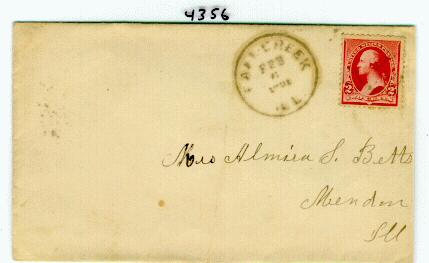 4356
FALL CREEK
FEB
6
ILL.
UNITED STATES POSTAGE
2 2
Mrs Almira S. Betts
Mendon
Ill